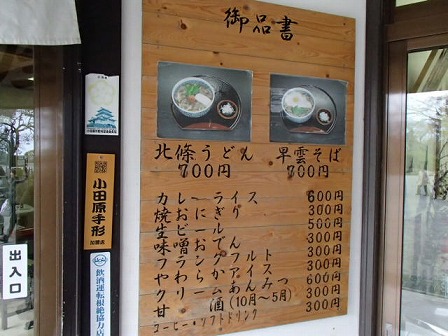 御品書
北條うどん
700円
早雲そば
700円
カレーライス 600円
焼おにぎり 300円
生ビール 500円
味噌おでん 300円
フランクフルト 300円
やわらかアイス 300円
クリームあんみつ 600円
甘酒(10月~5月) 300円
コーヒー・ソフトドリンク 300円
小田原手形
加盟店
出入口
飲酒運転根絶協力店